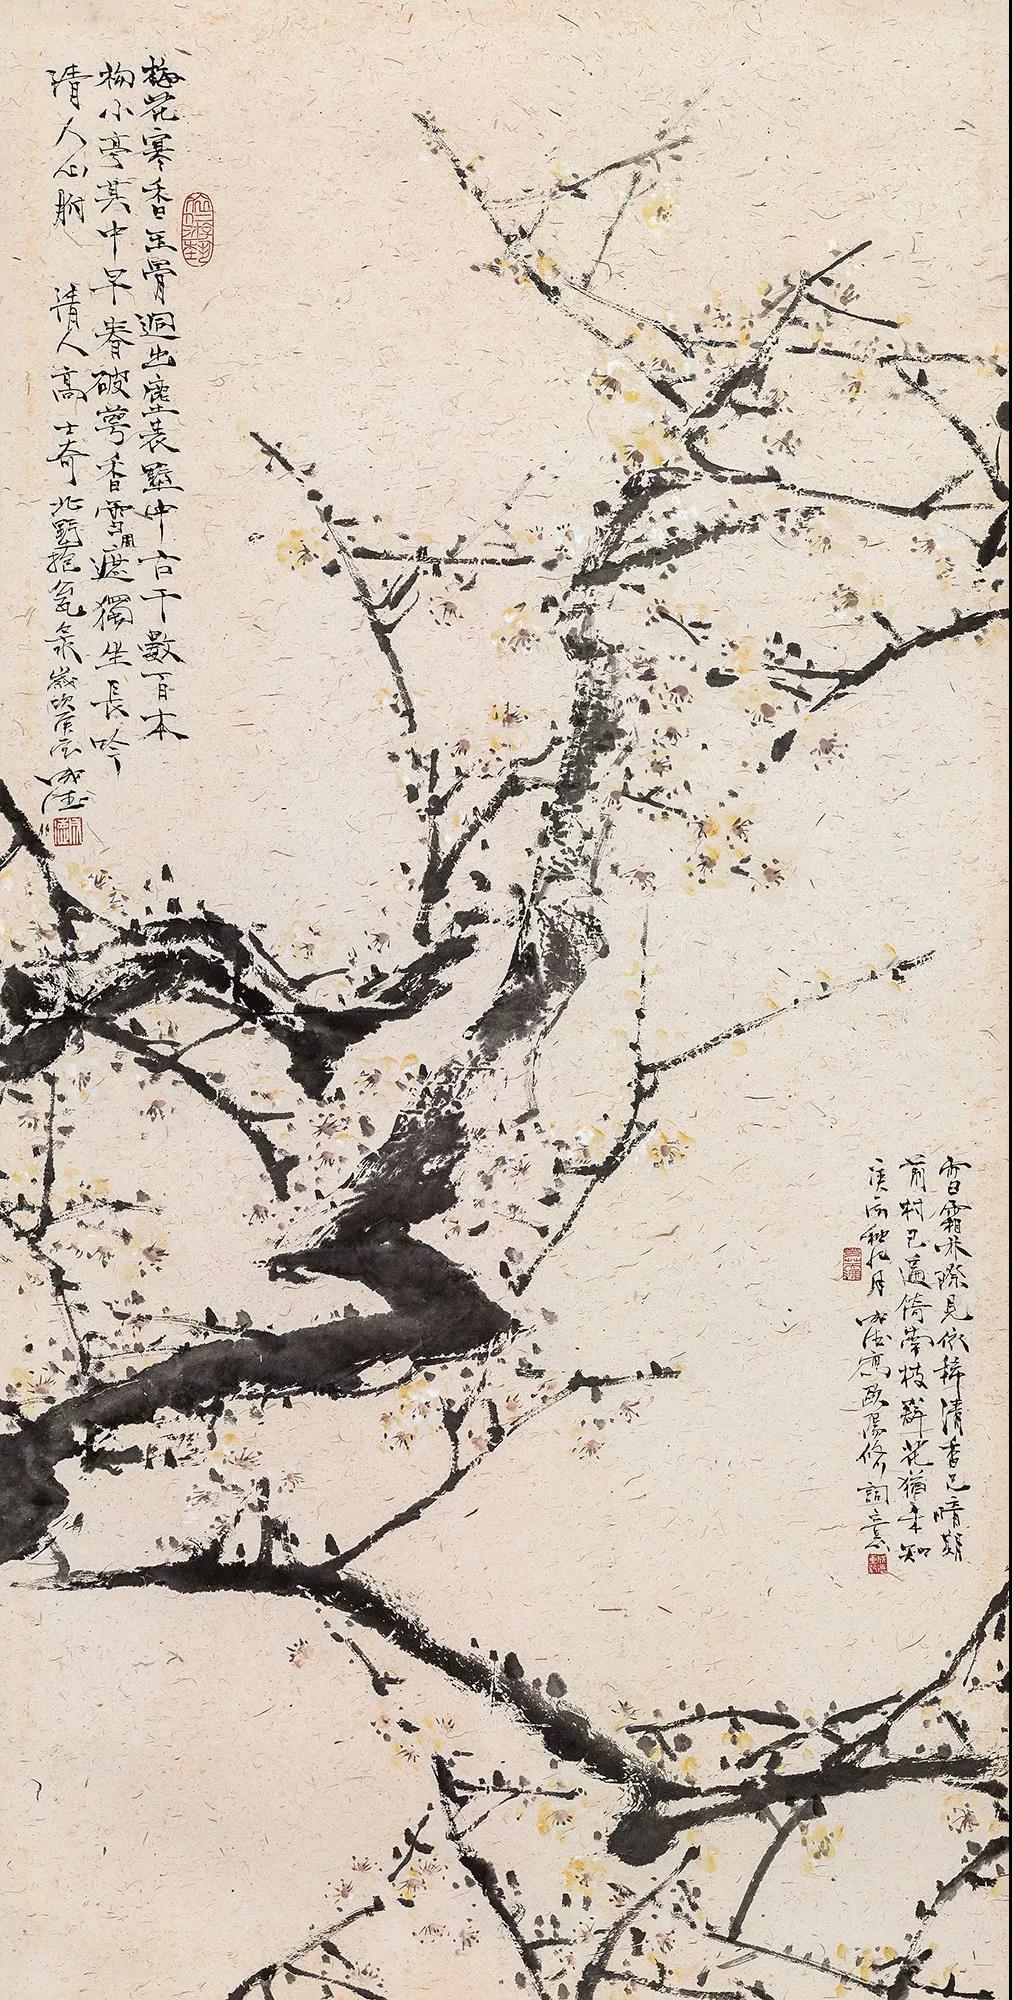 梅花寒香玉骨迥出塵表壑中古干數百本
构小亭其中早春破萼香雪周遮獨坐長吟
清人心腑 清人高士奇北墅抱瓮录歲次庚辰
雪霜林際見依稀清香已暗期
前村已遍倚南枝群花猶未知
秋九月寫歐陽修詞意